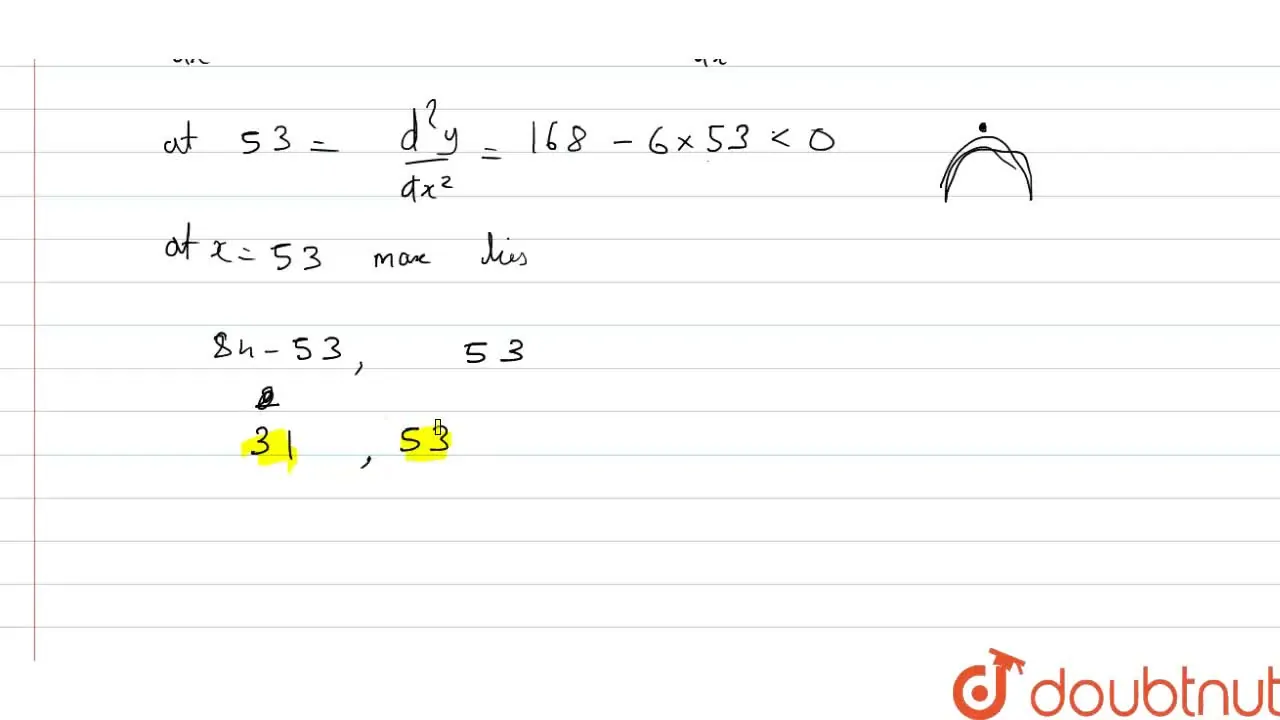 at 53 = d²y/dx² = 168 - 6 × 53 < 0
at x = 53 max lies
84 - 53, 53
31, 53
doubtnut